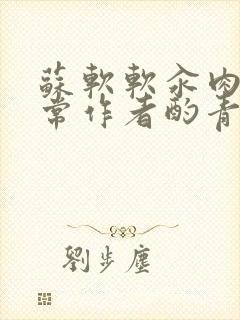 蘇軟軟汆肉
常作者酌青
劉步塵